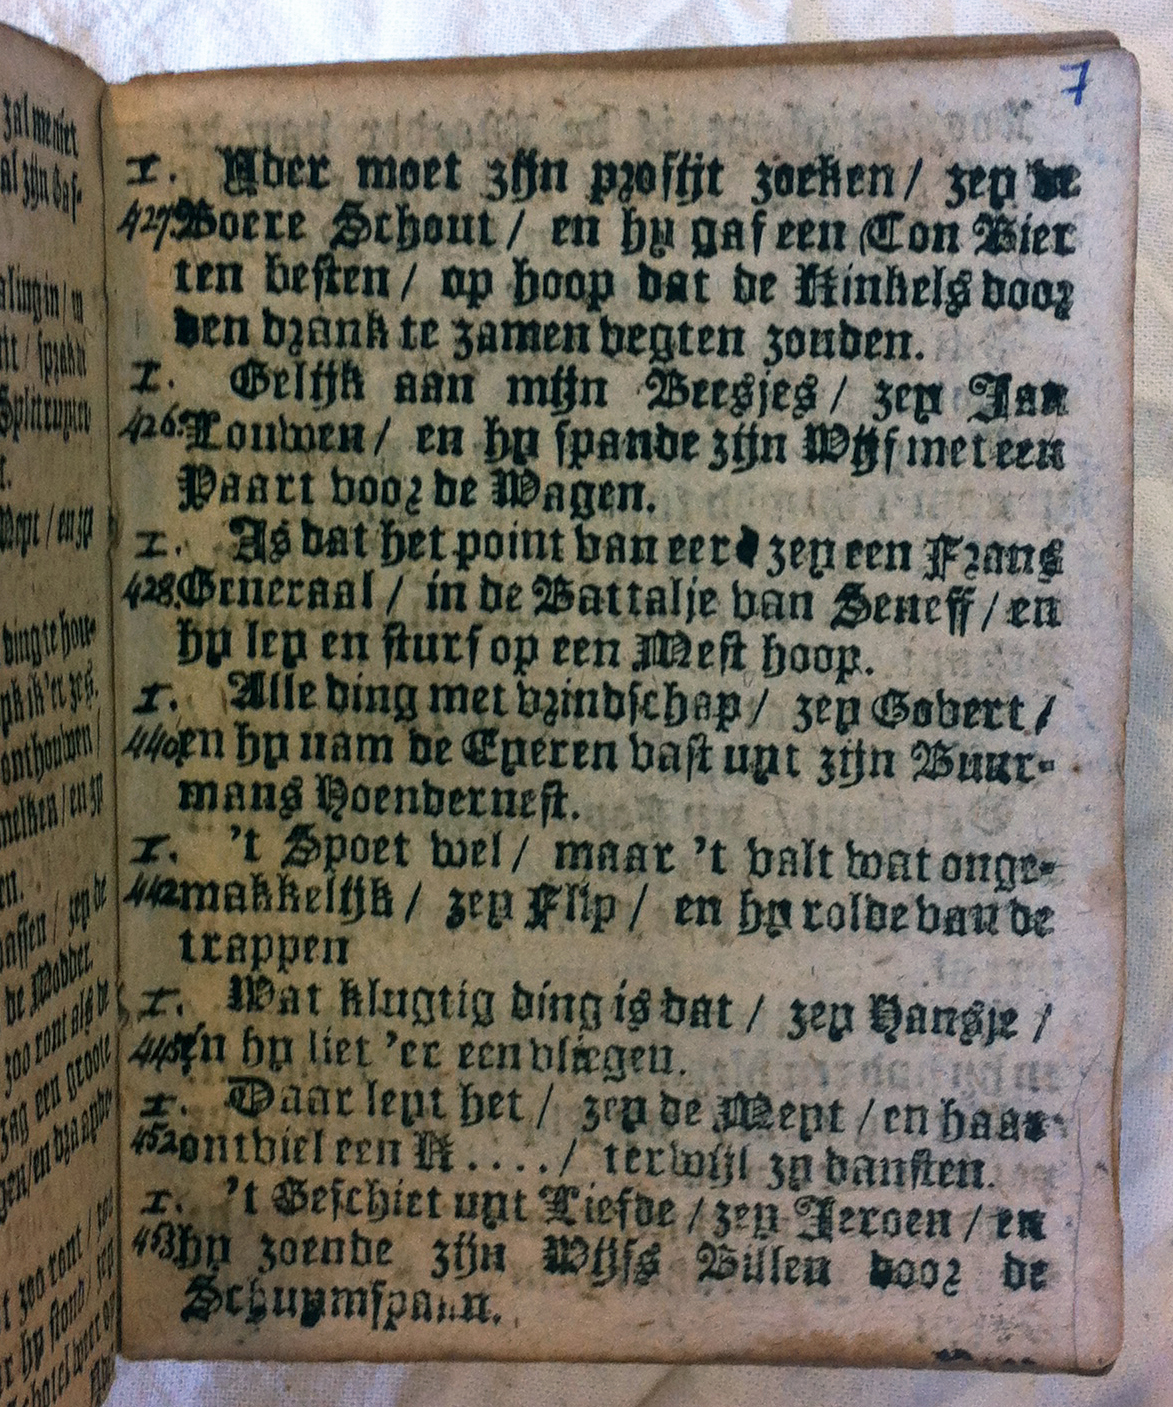 7
I. Yder moet zijn profijt zoeken / zey de
427 Boere Schout / en hy gaf een Ton Bier
ten besten / op hoop dat de Kinkels door
den drank te zamen vegten zouden.
I. Gelijk aan mijn Beesjes / zey Jan
426. Louwen / en hy spande zijn Wijf met een
Paart voor de Wagen.
I. As dat het point van eer zey een Frans
428. Generaal / in de Battalje van Seneff / en
hy ley en sturf op een Mest hoop.
I. Alle ding met vrindschap / zey Govert /
440. en hy nam de Eyeren vast uyt zijn Buur-
mans Hoendernest.
I. 't Spoet wel / maar 't valt wat onge-
442 makkelijk / zey Flip / en hy rolde van de
trappen
I. Wat klugtig ding is dat / zey Hansje /
en hy liet 'er een vliegen.
I. Daar leyt het / zey de Meyt / en haar
452 ontviel een K . . . . / terwijl zy dansten.
I. 't Geschiet uyt Liefde / zey Jeroen / en
453 hy zoende zijn Wijfs Billen door de
Schuymspaan.
zal me niet
al zijn
aling in /
/ sprak
Meyt / en zy
ding te hou-
onthouwen /
melken / en zy
en.
passen / zey de
de Modder.
zoo ront als de
zag een groote
gen / en draayde
zoo ront /
hy stond / zey